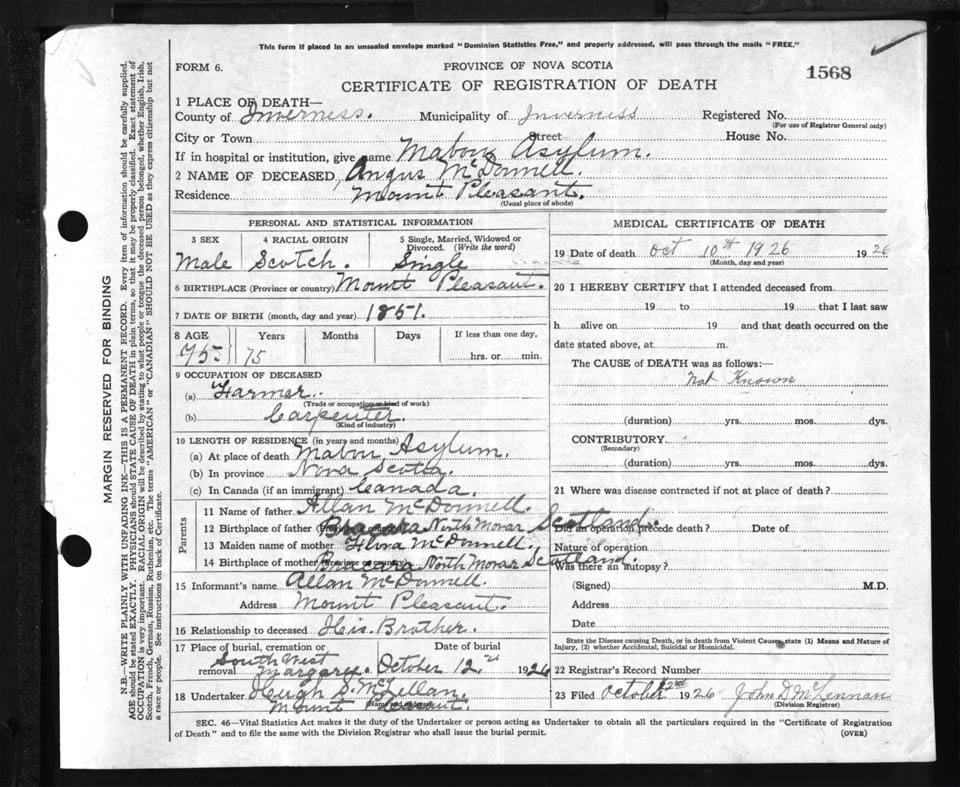 This form if placed in an unsealed envelope marked "Dominion Statistics Free," and properly addressed, will pass through the mails "FREE."
FORM 6.
PROVINCE OF NOVA SCOTIA
1568
CERTIFICATE OF REGISTRATION OF DEATH
1 PLACE OF DEATH—
County of Inverness. Municipality of Inverness Registered No.
(For use of Registrar General only)
City or Town Street House No.
If in hospital or institution, give name Mabou Asylum.
2 NAME OF DECEASED Angus McDonnell.
Residence Mount Pleasant.
(Usual place of abode)
PERSONAL AND STATISTICAL INFORMATION
3 SEX 4 RACIAL ORIGIN 5 Single, Married, Widowed or Divorced. (Write the word)
Male Scotch. Single
6 BIRTHPLACE (Province or country) Mount Pleasant.
7 DATE OF BIRTH (month, day and year) 1851.
8 AGE Years Months Days If less than one day,
75 75 hrs. or min.
9 OCCUPATION OF DECEASED
(a) Farmer.
(Trade or occupation or kind of work)
(b) Carpenter.
(Kind of industry)
10 LENGTH OF RESIDENCE (in years and months)
(a) At place of death Mabou Asylum.
(b) In province Nova Scotia.
(c) In Canada (if an immigrant) Canada.
Parents
11 Name of father Allan McDonnell.
12 Birthplace of father (Province or country) Bracara North Morar Scotland.
13 Maiden name of mother Flora McDonnell.
14 Birthplace of mother (Province or country) Bracara North Morar Scotland
15 Informant's name Allan McDonnell.
Address Mount Pleasant.
16 Relationship to deceased His Brother.
17 Place of burial, cremation or removal South West Margaree. Date of burial October 12 1926
18 Undertaker Hugh S. McLellan.
(Name and address)
Mount Pleasant.
MEDICAL CERTIFICATE OF DEATH
19 Date of death Oct 10th 1926 1926
(Month, day and year)
20 I HEREBY CERTIFY that I attended deceased from
19 to 19 that I last saw
h alive on 19 and that death occurred on the
date stated above, at m.
The CAUSE of DEATH was as follows:—
Not Known
(duration) yrs. mos. dys.
CONTRIBUTORY
(Secondary)
(duration) yrs. mos. dys.
21 Where was disease contracted if not at place of death?
Did an operation precede death? Date of
Nature of operation
Was there an autopsy?
(Signed) M.D.
Address
Date
State the Disease causing Death, or in death from Violent Causes, state (1) Means and Nature of Injury, (2) whether Accidental, Suicidal or Homicidal.
22 Registrar's Record Number
23 Filed October 1926 John D McLennan
(Division Registrar)
SEC. 46—Vital Statistics Act makes it the duty of the Undertaker or person acting as Undertaker to obtain all the particulars required in the "Certificate of Registration
of Death" and to file the same with the Division Registrar who shall issue the burial permit.
(OVER)
MARGIN RESERVED FOR BINDING
N.B.—WRITE PLAINLY WITH UNFADING INK—THIS IS A PERMANENT RECORD. Every item of information should be carefully supplied.
AGE should be stated EXACTLY. PHYSICIANS should STATE CAUSE OF DEATH in plain terms, so that it may be properly classified. Exact statement of
OCCUPATION is very important. RACIAL ORIGIN will be described by stating to what people or tongue the deceased person belonged, whether English, Irish,
Scotch, French, German, Russian, Ruthenian, etc. The terms "AMERICAN" or "CANADIAN" SHOULD NOT BE USED as they express citizenship but not
a race or people. See instructions on back of Certificate.